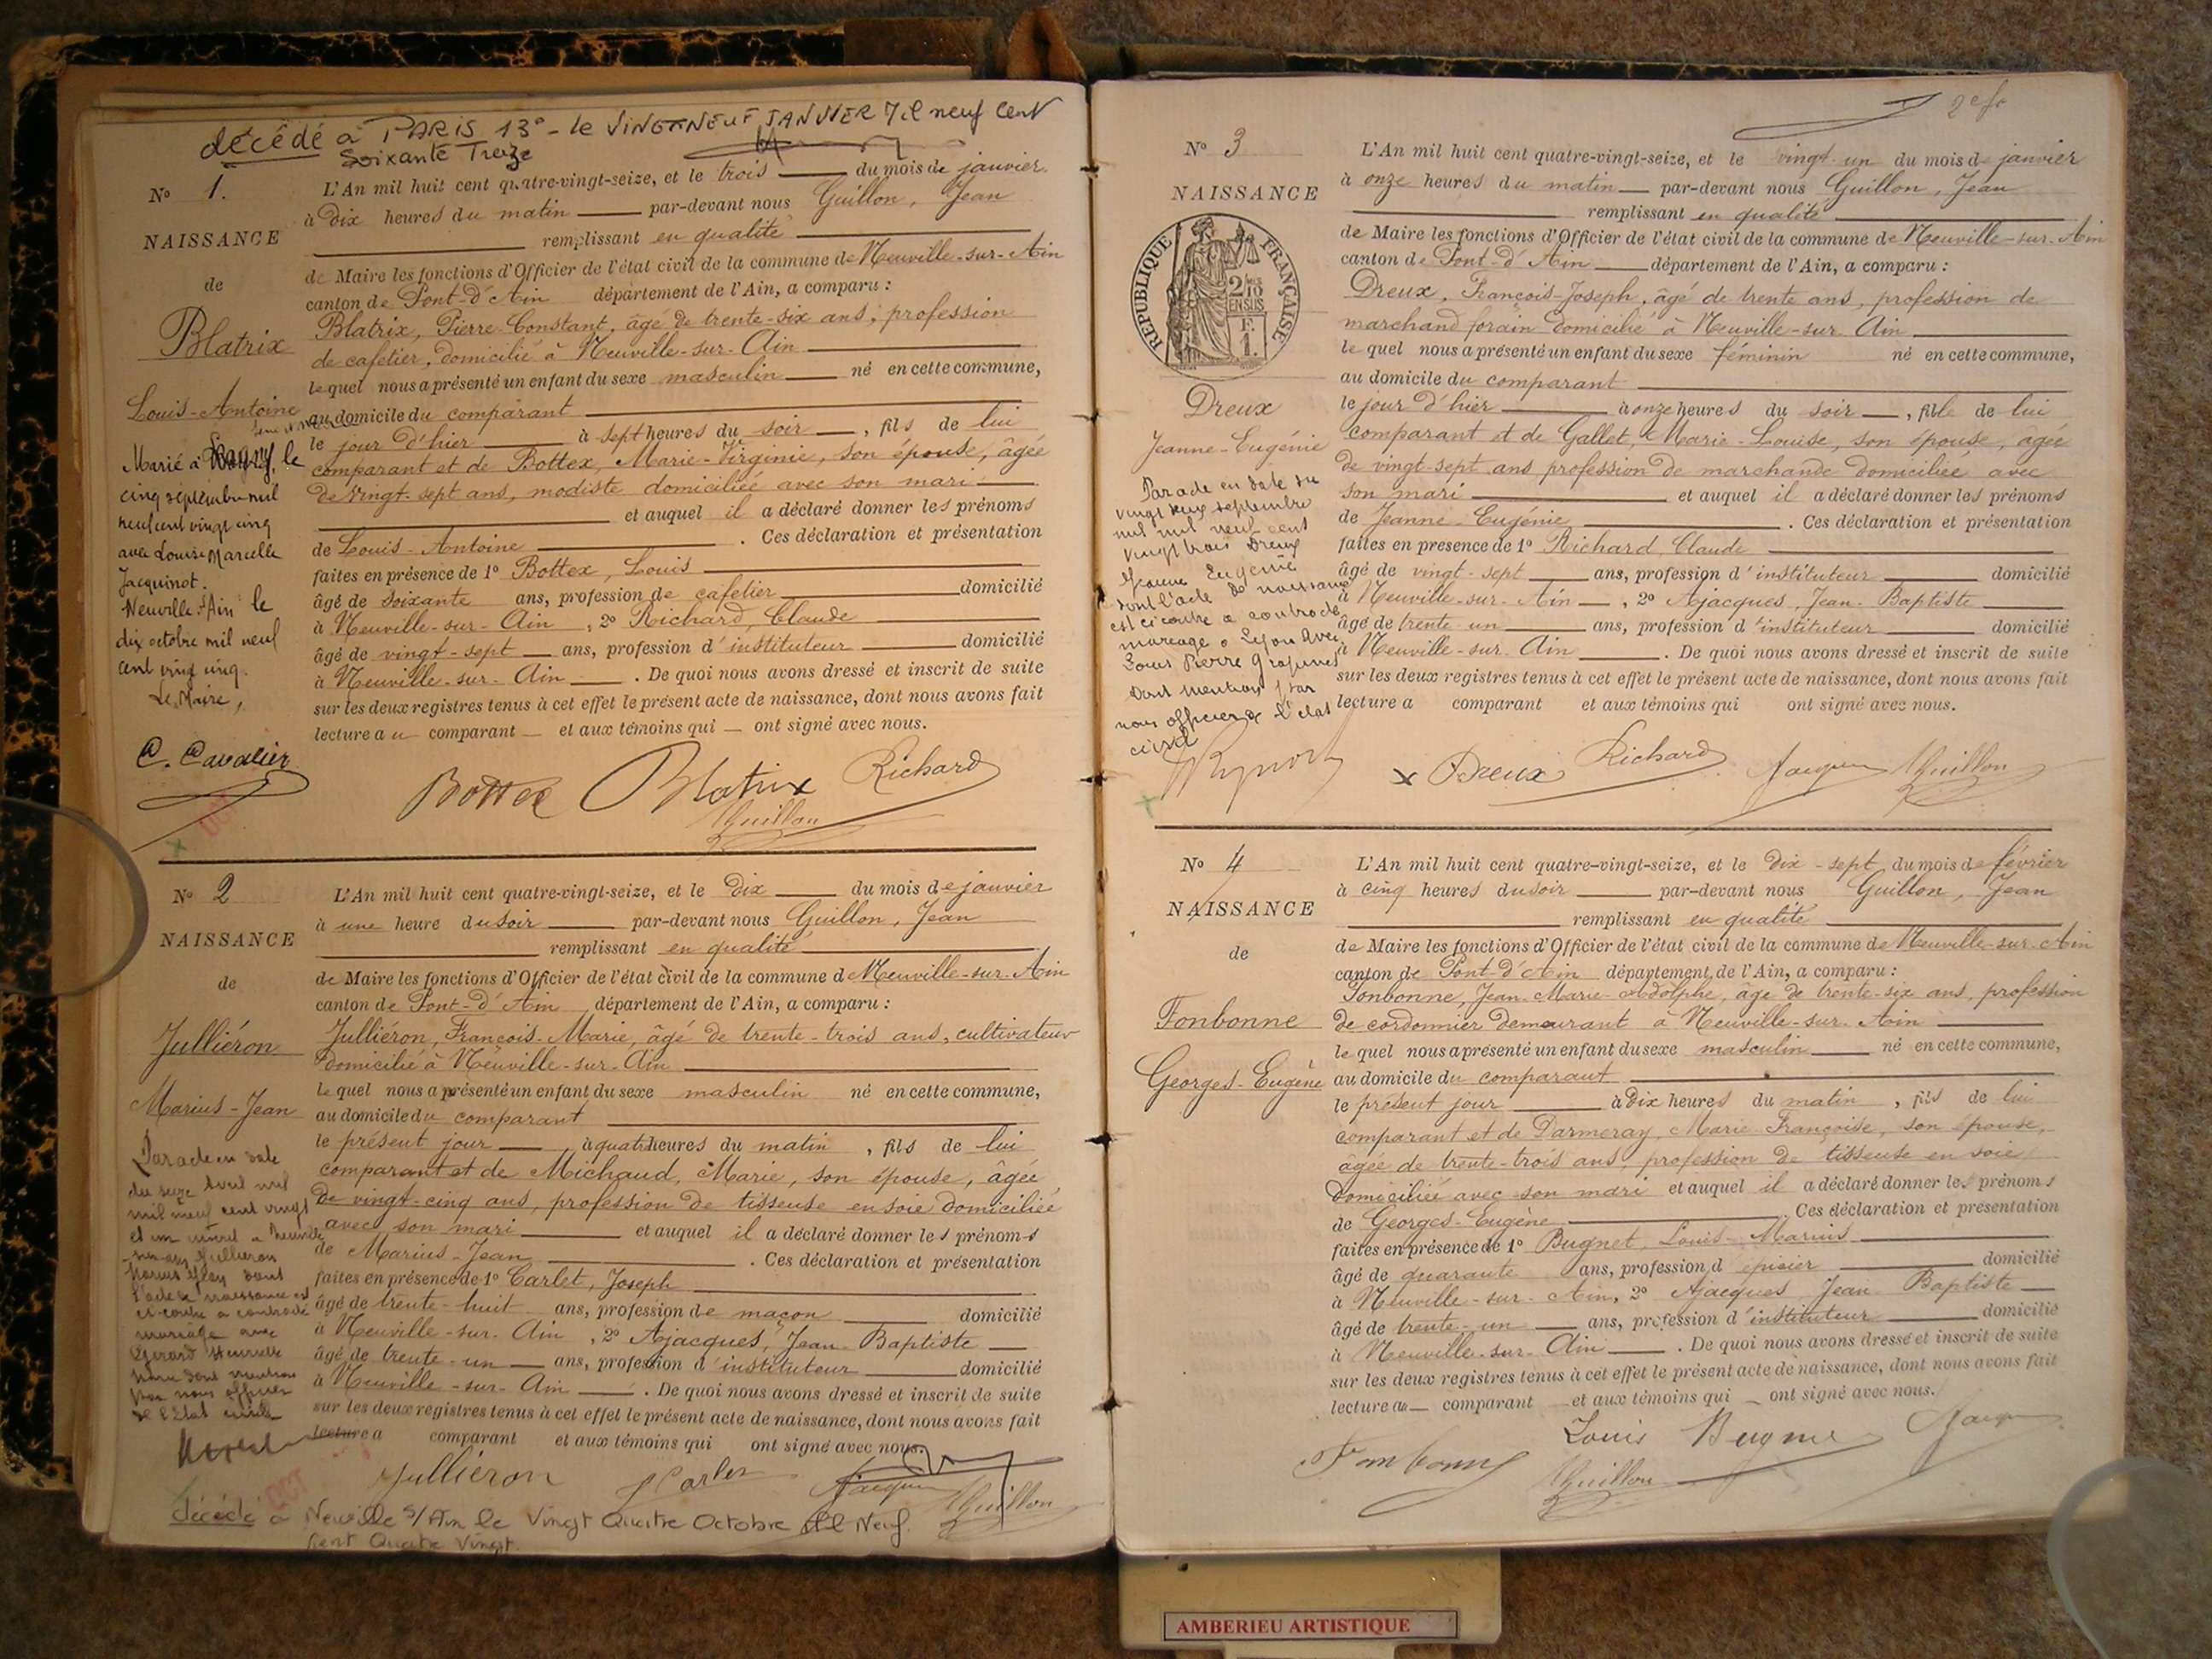 décédé à PARIS 13e - le VINGT NEUF JANVIER Mil neuf Cent
Soixante Treize
No 1.
NAISSANCE
de
Blatrix
Louis-Antoine
Marié à le
cinq septembre mil
neuf cent vingt cinq
avec Louise Marcelle
Jacquinot.
Neuville s/Ain le
dix octobre mil neuf
cent vingt cinq.
Le Maire,
C. Cavalier
L'An mil huit cent quatre-vingt-seize, et le trois du mois de janvier
à dix heures du matin par-devant nous Guillon, Jean
remplissant en qualité
de Maire les fonctions d'Officier de l'état civil de la commune de Neuville-sur-Ain
canton de Pont-d'Ain département de l'Ain, a comparu :
Blatrix, Pierre-Constant, âgé de trente-six ans, profession
de cafetier, domicilié à Neuville-sur-Ain
lequel nous a présenté un enfant du sexe masculin né en cette commune,
au domicile du comparant
le jour d'hier à sept heures du soir , fils de lui
comparant et de Bottex, Marie-Virginie, son épouse, âgée
de vingt-sept ans, modiste domiciliée avec son mari
et auquel il a déclaré donner les prénoms
de Louis-Antoine . Ces déclaration et présentation
faites en présence de 1o Bottex, Louis
âgé de soixante ans, profession de cafetier domicilié
à Neuville-sur-Ain , 2o Richard, Claude
âgé de vingt-sept ans, profession d'instituteur domicilié
à Neuville-sur-Ain . De quoi nous avons dressé et inscrit de suite
sur les deux registres tenus à cet effet le présent acte de naissance, dont nous avons fait
lecture au comparant et aux témoins qui ont signé avec nous.
Bottex Blatrix Richard
Guillon
OCT
No 2
NAISSANCE
de
Julliéron
Marius-Jean
Par acte en date
du seize Avril mil
mil neuf cent vingt
et un inscrit à Neuville
sur Ain Julliéron
Marius Jean dont
l'acte de naissance est
ci-contre a contracté
mariage avec
dont mention
par nous officier
de l'Etat civil
L'An mil huit cent quatre-vingt-seize, et le dix du mois de janvier
à une heure du soir par-devant nous Guillon, Jean
remplissant en qualité
de Maire les fonctions d'Officier de l'état civil de la commune de Neuville-sur-Ain
canton de Pont-d'Ain département de l'Ain, a comparu :
Julliéron, François-Marie, âgé de trente-trois ans, cultivateur
domicilié à Neuville-sur-Ain
lequel nous a présenté un enfant du sexe masculin né en cette commune,
au domicile du comparant
le présent jour , à quatre heures du matin , fils de lui
comparant et de Michaud, Marie, son épouse, âgée
de vingt-cinq ans, profession de tisseuse en soie domiciliée
avec son mari et auquel il a déclaré donner les prénoms
de Marius-Jean . Ces déclaration et présentation
faites en présence de 1o Carlet, Joseph
âgé de trente-huit ans, profession de maçon domicilié
à Neuville-sur-Ain , 2o Ajacques, Jean-Baptiste
âgé de trente-un ans, profession d'instituteur domicilié
à Neuville-sur-Ain . De quoi nous avons dressé et inscrit de suite
sur les deux registres tenus à cet effet le présent acte de naissance, dont nous avons fait
lecture a comparant et aux témoins qui ont signé avec nous.
Julliéron J Carlet Ajacques Guillon
OCT
décédé à Neuville s/Ain le Vingt Quatre Octobre Mil Neuf
Cent Quatre Vingt.
2e fo
No 3
NAISSANCE
REPUBLIQUE FRANÇAISE
2/10 EN SUS
F. 1.
Dreux
Jeanne-Eugénie
Par acte en date du
vingt deux septembre
mil mil neuf cent
vingt trois Dreux
Jeanne Eugénie
dont l'acte de naissance
est ci contre a contracté
mariage à Lyon avec
Louis Pierre
Dont mention par
nous officier de l'état
civil
L'An mil huit cent quatre-vingt-seize, et le vingt-un du mois de janvier
à onze heures du matin par-devant nous Guillon, Jean
remplissant en qualité
de Maire les fonctions d'Officier de l'état civil de la commune de Neuville-sur-Ain
canton de Pont-d'Ain département de l'Ain, a comparu :
Dreux, François-Joseph, âgé de trente ans, profession de
marchand forain domicilié à Neuville-sur-Ain
lequel nous a présenté un enfant du sexe féminin né en cette commune,
au domicile du comparant
le jour d'hier à onze heures du soir , fille de lui
comparant et de Gallet, Marie-Louise, son épouse, âgée
de vingt-sept ans profession de marchande domiciliée avec
son mari et auquel il a déclaré donner les prénoms
de Jeanne-Eugénie . Ces déclaration et présentation
faites en présence de 1o Richard Claude
âgé de vingt-sept ans, profession d'instituteur domicilié
à Neuville-sur-Ain , 2o Ajacques, Jean-Baptiste
âgé de trente-un ans, profession d'instituteur domicilié
à Neuville-sur-Ain . De quoi nous avons dressé et inscrit de suite
sur les deux registres tenus à cet effet le présent acte de naissance, dont nous avons fait
lecture a comparant et aux témoins qui ont signé avec nous.
x Dreux Richard Ajacques Guillon
No 4
NAISSANCE
de
Fonbonne
Georges-Eugène
L'An mil huit cent quatre-vingt-seize, et le dix-sept du mois de février
à cinq heures du soir par-devant nous Guillon, Jean
remplissant en qualité
de Maire les fonctions d'Officier de l'état civil de la commune de Neuville-sur-Ain
canton de Pont-d'Ain département de l'Ain, a comparu :
Fonbonne, Jean-Marie-Adolphe, âgé de trente-six ans, profession
de cordonnier demeurant à Neuville-sur-Ain
lequel nous a présenté un enfant du sexe masculin né en cette commune,
au domicile du comparant
le présent jour à dix heures du matin , fils de lui
comparant et de Darmeray, Marie-Françoise, son épouse,
âgée de trente-trois ans, profession de tisseuse en soie
domiciliée avec son mari et auquel il a déclaré donner les prénoms
de Georges-Eugène . Ces déclaration et présentation
faites en présence de 1o Bugnet, Louis-Marius
âgé de quarante ans, profession d'épicier domicilié
à Neuville-sur-Ain, 2o Ajacques Jean Baptiste
âgé de trente-un ans, profession d'instituteur domicilié
à Neuville-sur-Ain . De quoi nous avons dressé et inscrit de suite
sur les deux registres tenus à cet effet le présent acte de naissance, dont nous avons fait
lecture au comparant et aux témoins qui ont signé avec nous.
Fonbonne Louis Bugnet Ajacques
Guillon
AMBERIEU ARTISTIQUE